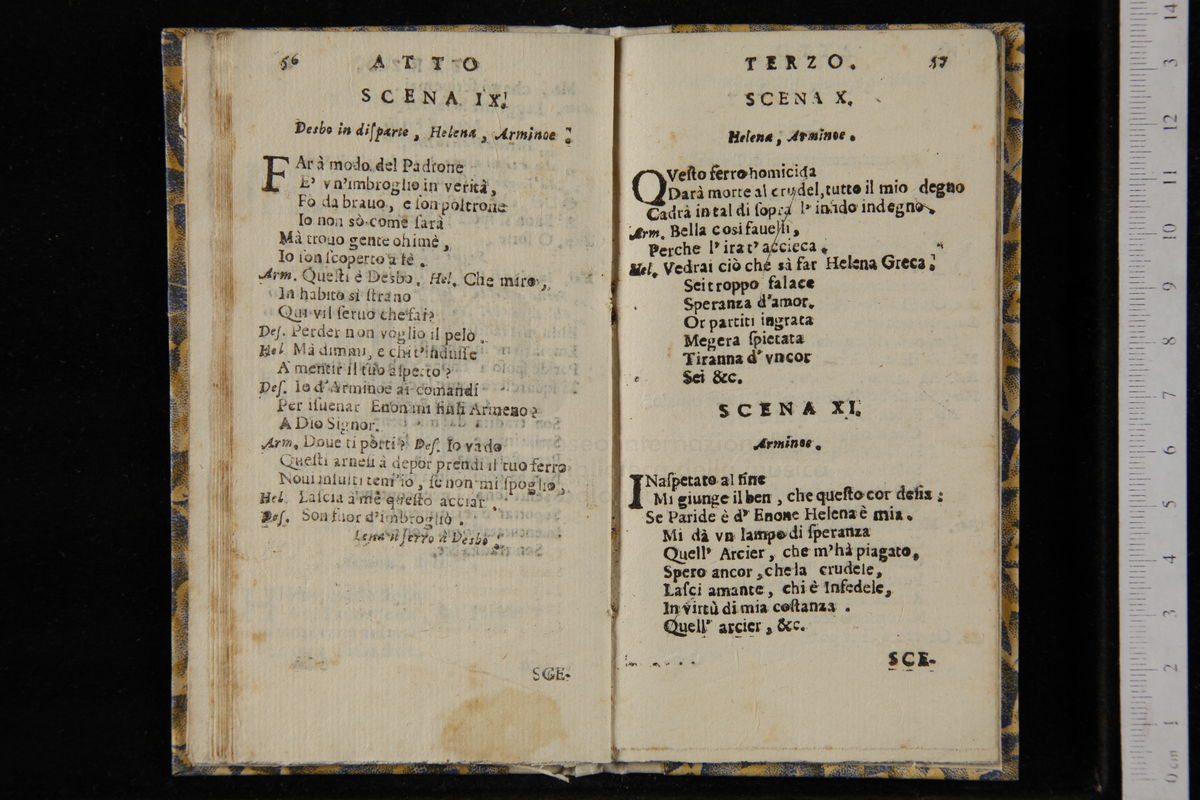 56
ATTO
SCENA IX.
Desbo in diſparte, Helena, Arminoe.
FAr à modo del Padrone
E' vn'imbroglio in verità,
Fò da brauo, e ſon poltrone
Io non sò come ſarà
Mà trouo gente ohimè,
Io ſon ſcoperto a fè.
Arm. Queſti è Desbo. Hel. Che miro,
In habito sì ſtrano
Qui vil ſeruo che fai?
Deſ. Perder non voglio il pelo.
Hel. Mà dimmi, e chi t'induſſe
A mentir il tuo aſpetto?
Deſ. Io d'Arminoe ai comandi
Per iſuenar Enon mi finſi Armeno?
A Dio Signor.
Arm. Doue ti pòrti? Deſ. Io vado
Queſti arneſi à depor prendi il tuo ferro
Noui inſulti tem'io, ſe non mi ſpoglio,
Hel. Laſcia à mè queſto acciar
Deſ. Son fuor d'imbroglio.
Leua il ferro à Desbo.
SCE-
TERZO.
57
SCENA X.
Helena, Arminoe.
QVeſto ferro homicida
Darà morte al crudel, tutto il mio degno
Cadrà in tal di ſopra l' infido indegno.
Arm. Bella cosi fauelli,
Perche l' ira t' accieca.
Hel. Vedrai ciò che sà far Helena Greca.
Sei troppo falace
Speranza d'amor.
Or partiti ingrata
Megera ſpietata
Tiranna d' vn cor
Sei &c.
SCENA XI.
Arminoe.
INaſpetato al fine
Mi giunge il ben, che queſto cor deſia;
Se Paride è d' Enone Helena è mia.
Mi dà vn lampo di ſperanza
Quell' Arcier, che m'hà piagato,
Spero ancor, che la crudele,
Laſci amante, chi è Infedele,
In virtù di mia coſtanza.
Quell' arcier, &c.
SCE-